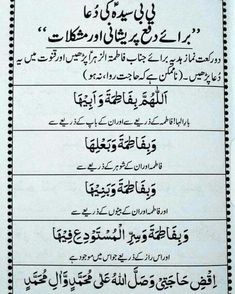 بی بی سیدہؑ کی دُعا
’’برائے دفع پریشانی اور مشکلات‘‘
دو رکعت نماز ہدیہ برائے جناب فاطمۃ الزہراؑ پڑھیں اور قنوت میں یہ
دُعا پڑھیں۔ (ناممکن ہے کہ حاجت روا نہ ہو)
اَللّٰهُمَّ بِفَاطِمَةَ وَ اَبِيْهَا
بارالٰہا! فاطمہؑ اور ان کے باپ کے ذریعے سے
وَ بِفَاطِمَةَ وَ بَعْلِهَا
فاطمہؑ اور ان کے شوہر کے ذریعے سے
وَ بِفَاطِمَةَ وَ بَنِيْهَا
اور فاطمہؑ اور ان کے بیٹوں کے ذریعے سے
وَ بِفَاطِمَةَ وَ سِرِّ الْمُسْتَوْدَعِ فِيْهَا
اور اس راز کے ذریعے جو اس میں موجود ہے
اِقْضِ حَاجَتِيْ وَصَلَّ اللّٰهُ عَلٰى مُحَمَّدٍ وَّ اٰلِ مُحَمَّدٍ